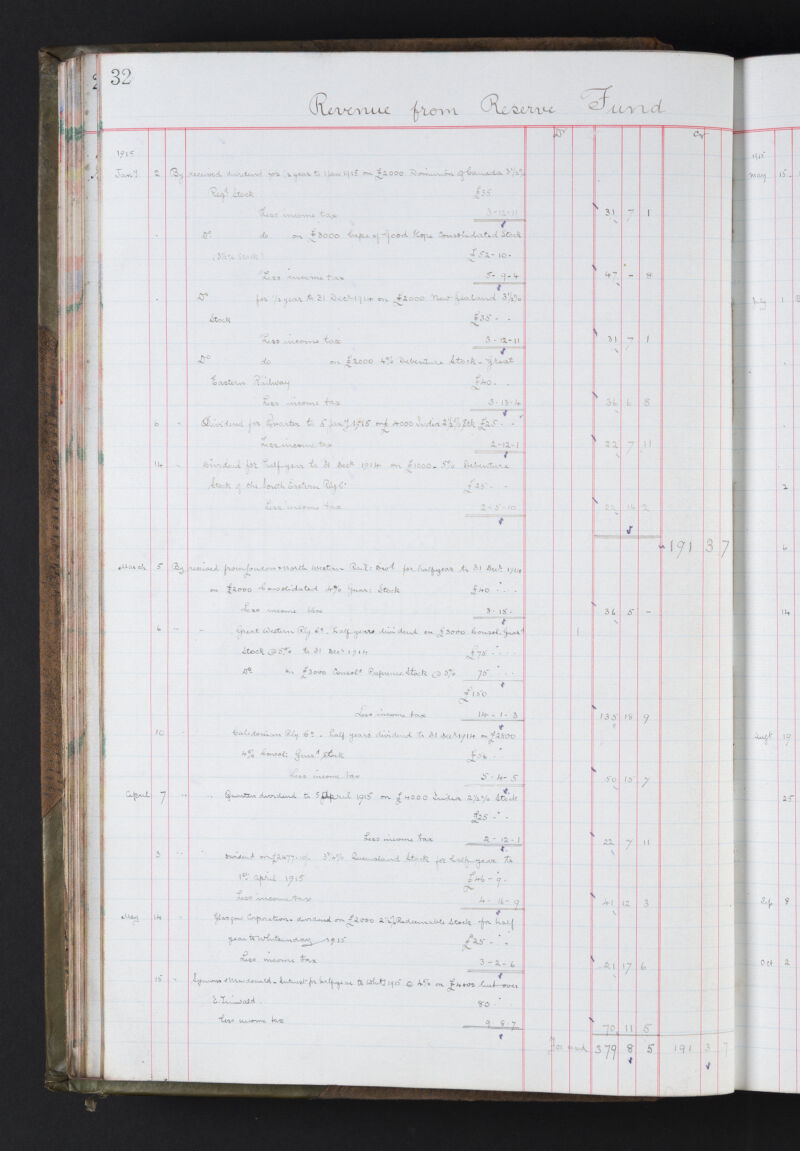 32
Revenue from Reserve Fund
Dr Cr
1915
Jany 2 By received dividend for ½ year to 1 Jan 1915 on £2000 Dominion of Canada 3½%
Regd Stock £35
Less income tax 3-12-11 31 7 1
Do do on £3000 Cape of Good Hope Consolidated Stock
£52-10-
Less income tax 5-9-4 47 - 8
Do for ½ year to 31 Decr 1914 on £2000 New Zealand 3½%
Stock £35 - -
Less income tax 3-12-11 31 7 1
Do do on £2000 4% Debenture Stock - Great
Eastern Railway £40 - -
Less income tax 3-13-4 36 6 8
6 - Dividend for Quarter to 5 Jany 1915 on £4000 India 2½% Stk £25 - -
Less income tax 2-12-1 22 7 11
14 - Dividend for half-year to 31 Decr 1914 on £1000 - 5% Debenture
Stock of the South Eastern Rly Co £25 - -
Less income tax 2-5-10 22 14 2
191 3 7
March 5 By received from London & North Western for halfyear to 31 Decr 1914
on £2000 Consolidated 4% Guar: Stock £40 - -
Less income tax 3-15- 36 5 -
6 - - Great Western Rly Co. half years dividend on £3000 Consol. Guard
Stock @ 5% to 31 Decr 1914 £75 - -
Do on £3000 Consold Preference Stock @ 5% 75 - -
£150
Less income tax 14-1-3 135 18 9
10 - Caledonian Rly Co. half years dividend to 31 Decr 1914 on £2800
4% Consol: Guard Stock £56 -
Less income tax 5-4-5 50 15 7
April 7 - - Quarter dividend to 5 April 1915 on £4000 India 2½% Stock
£25 - -
Less income tax 2-12-1 22 7 11
3 - - Dividend on £2477-10/- Queensland Stock for half-year to
1st April 1915 £46-9-
Less income tax 4-16-9 41 12 3
May 14 - Glasgow Corporation dividend on £2000 2½% Redeemable Stock for half
year to Whitsunday 1915 £25 - -
Less income tax 3-2-6 21 17 6
15 - Interest for halfyear to Whity 1915 @ 4% on £4000 lent over
80 -
Less income tax 9 8 7 70 11 5
Forward 379 8 5 191 3 7
1915
May 15
July 1
2
6
14
Augt 19
25
Sep 8
Oct 2